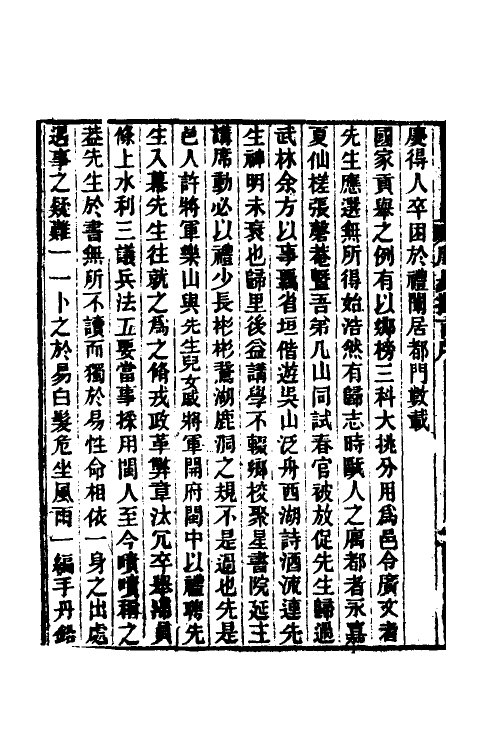 慶得人卒困於禮闈居都門數載
國家貢舉之例有以鄉榜三科大挑分用爲邑令廣文者
先生應選無所得始浩然有歸志時甌人之寓都者永嘉
夏仙槎張馨菴暨吾弟几山同試春官被放促先生歸過
武林余方以事羈省垣偕遊吳山泛舟西湖詩酒流連先
生神明未衰也歸里後益講學不輟鄉校聚星書院延主
講席動必以禮少長彬彬鵞湖鹿洞之規不是過也先是
邑人許將軍樂山與先生兒女戚將軍開府閩中以禮聘先
生入幕先生往就之爲之脩戎政革弊章汰冗卒舉 員
條上水利三議兵法五要當事採用閩人至今嘖嘖稱之
葢先生於書無所不讀而獨於易性命相依一身之出處
遇事之疑難一一卜之於易白髮危坐風雨一編手丹鉛